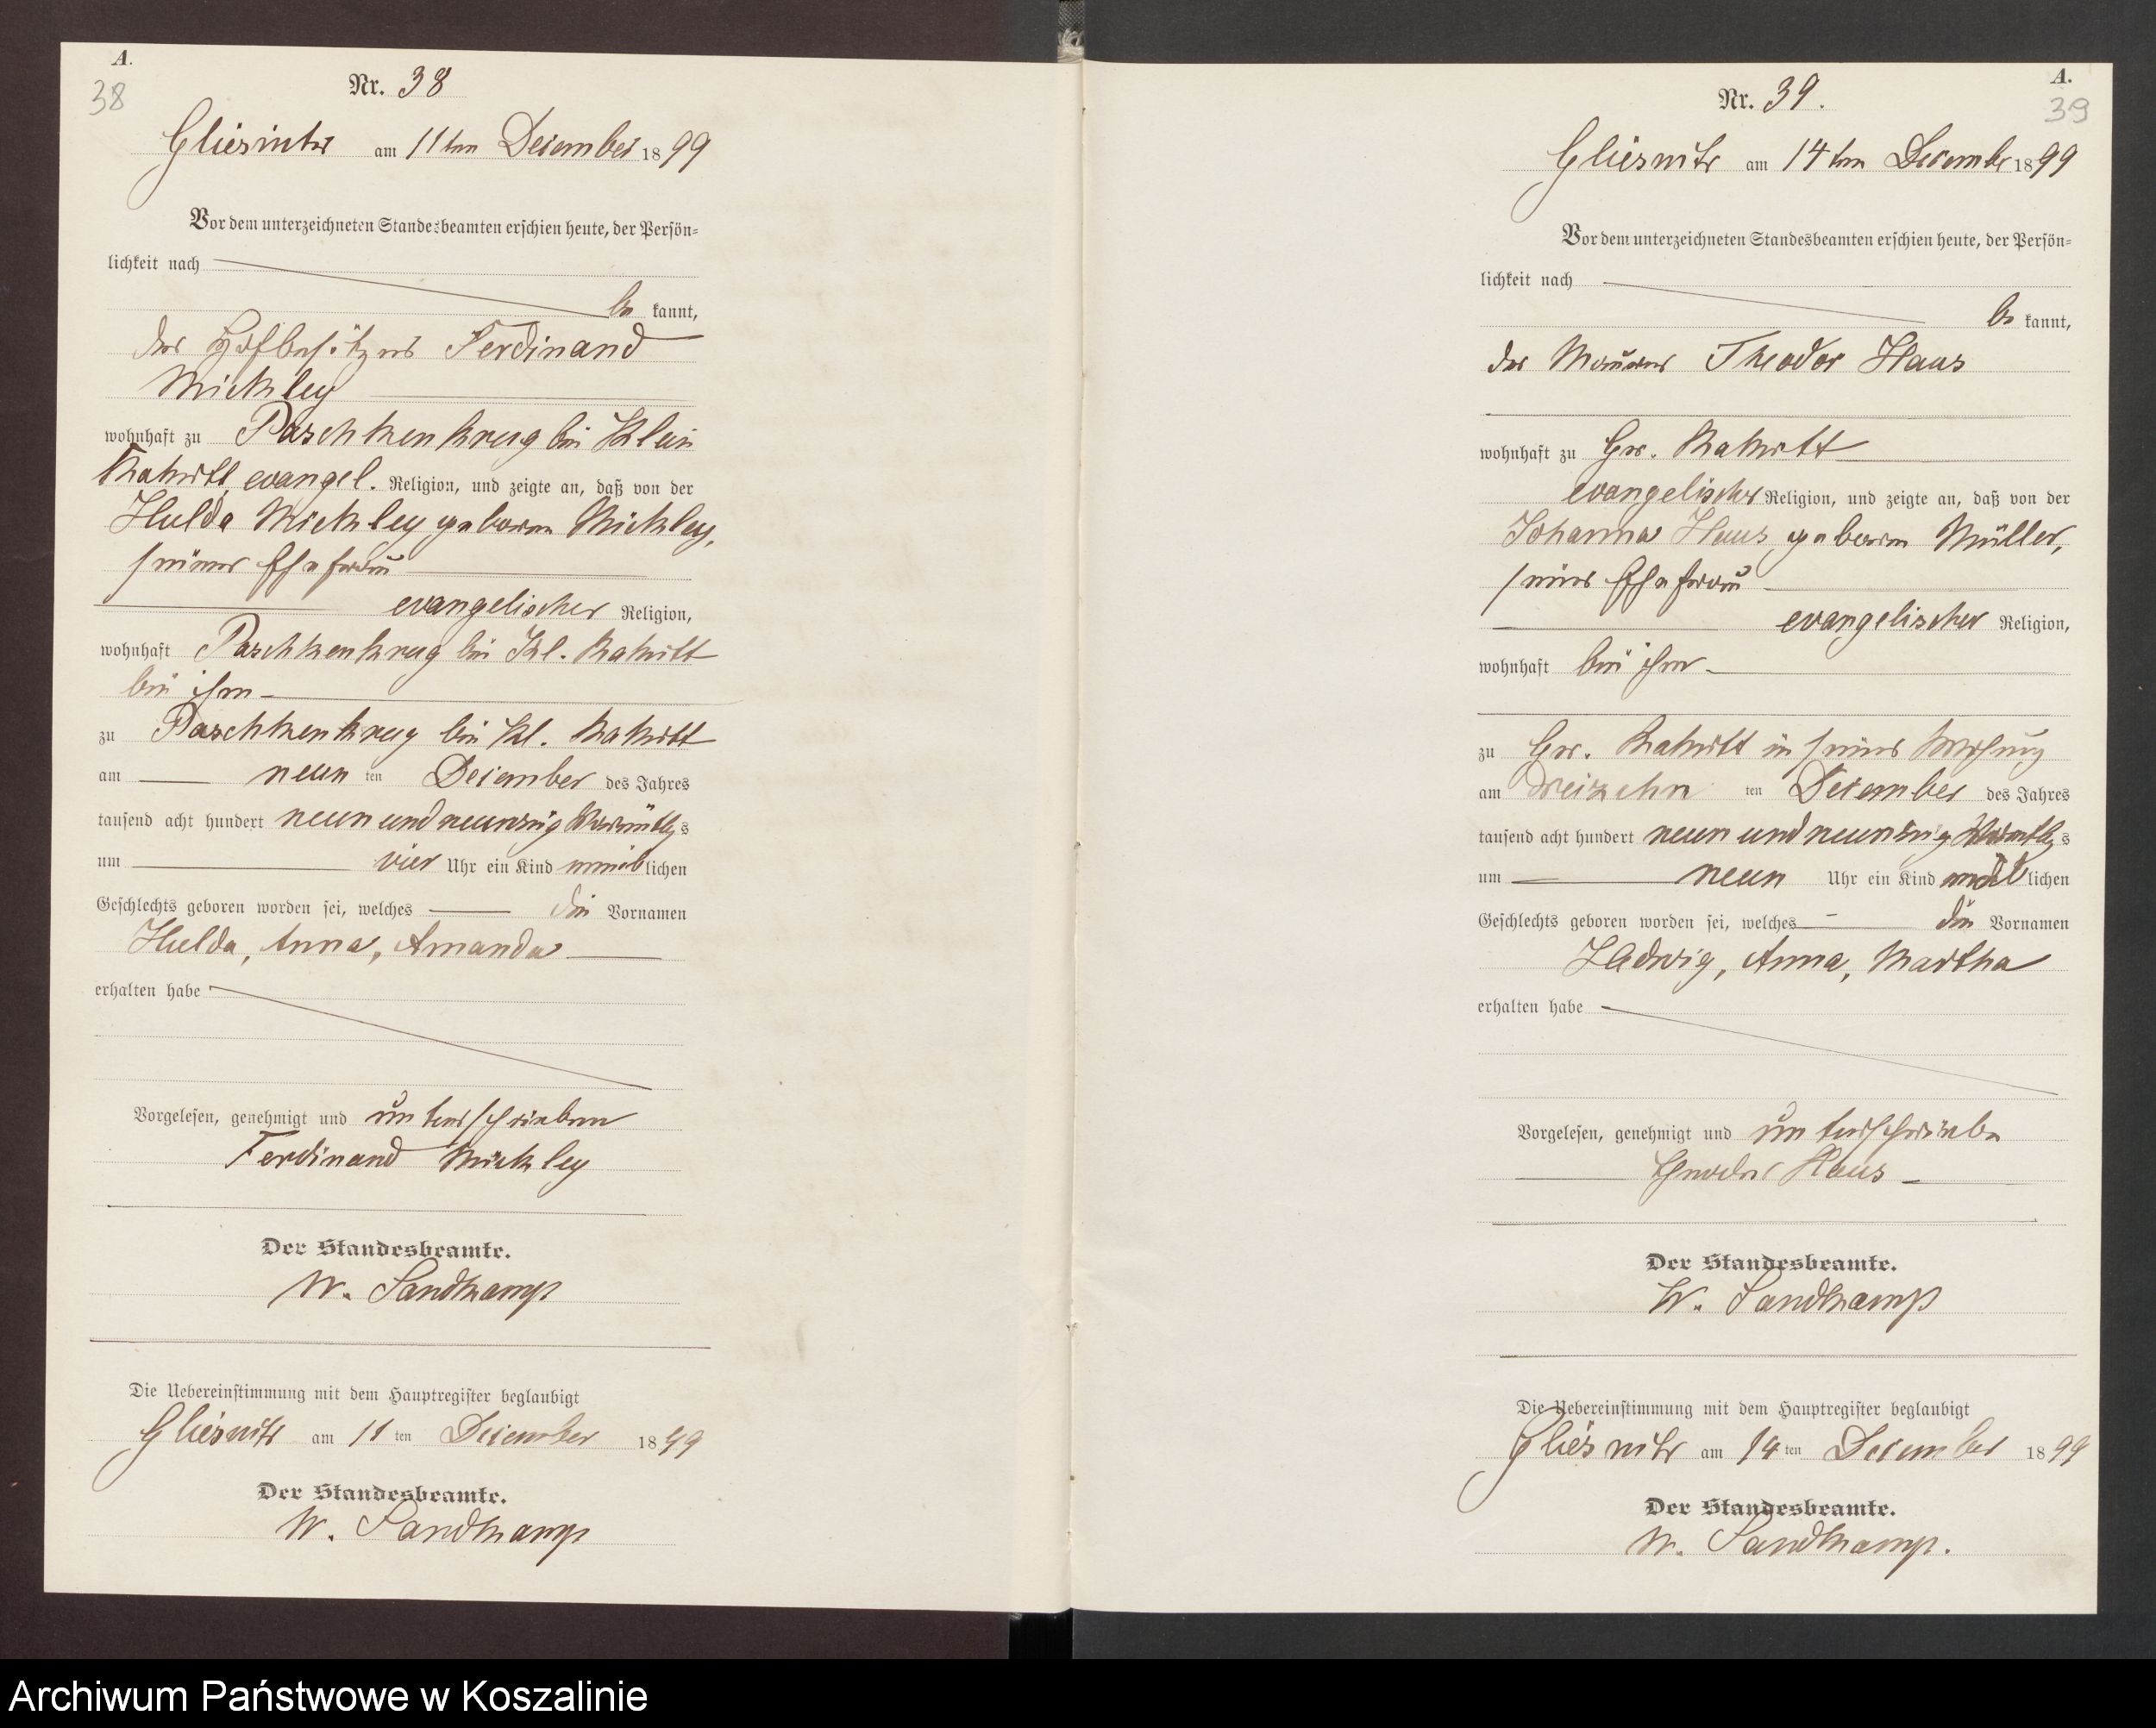 A.
38
Nr. 38
Gliesnitz am 11ten Dezember 1899
Vor dem unterzeichneten Standesbeamten erschien heute, der Persön-
lichkeit nach
be kannt,
der Hofbesitzer Ferdinand
Mickley
wohnhaft zu Paschkenkrug bei Klein
Rakitt, evangel. Religion, und zeigte an, daß von der
Hulda Mickley geborene Mickley,
seiner Ehefrau
evangelischer Religion,
wohnhaft Paschkenkrug bei Kl. Rakitt
bei ihm
zu Paschkenkrug bei Kl. Rakitt
am neun ten Dezember des Jahres
tausend acht hundert neun und neunzig Vormittags
um vier Uhr ein Kind weiblichen
Geschlechts geboren worden sei, welches die Vornamen
Hulda, Anna, Amanda
erhalten habe
Vorgelesen, genehmigt und unterschrieben
Ferdinand Mickley
Der Standesbeamte.
W. Sandkamp
Die Uebereinstimmung mit dem Hauptregister beglaubigt
Gliesnitz am 11 ten Dezember 1899
Der Standesbeamte.
W. Sandkamp
A.
39
Nr. 39.
Gliesnitz am 14ten Dezembr 1899
Vor dem unterzeichneten Standesbeamten erschien heute, der Persön-
lichkeit nach
be kannt,
der Maurer Theodor Haus
wohnhaft zu Gr. Rakitt
evangelischer Religion, und zeigte an, daß von der
Johanna Haus, geboren Müller,
seiner Ehefrau
evangelischer Religion,
wohnhaft bei ihm
zu Gr. Rakitt in seiner Wohnung
am dreizehn ten Dezember des Jahres
tausend acht hundert neun und neunzig Vormittags
um neun Uhr ein Kind weiblichen
Geschlechts geboren worden sei, welches die Vornamen
Hedwig, Anna, Martha
erhalten habe
Vorgelesen, genehmigt und unterschrieben
Theodor Haus
Der Standesbeamte.
W. Sandkamp
Die Uebereinstimmung mit dem Hauptregister beglaubigt
Gliesnitz am 14 ten Dezember 1899
Der Standesbeamte.
W. Sandkamp.
Archiwum Państwowe w Koszalinie